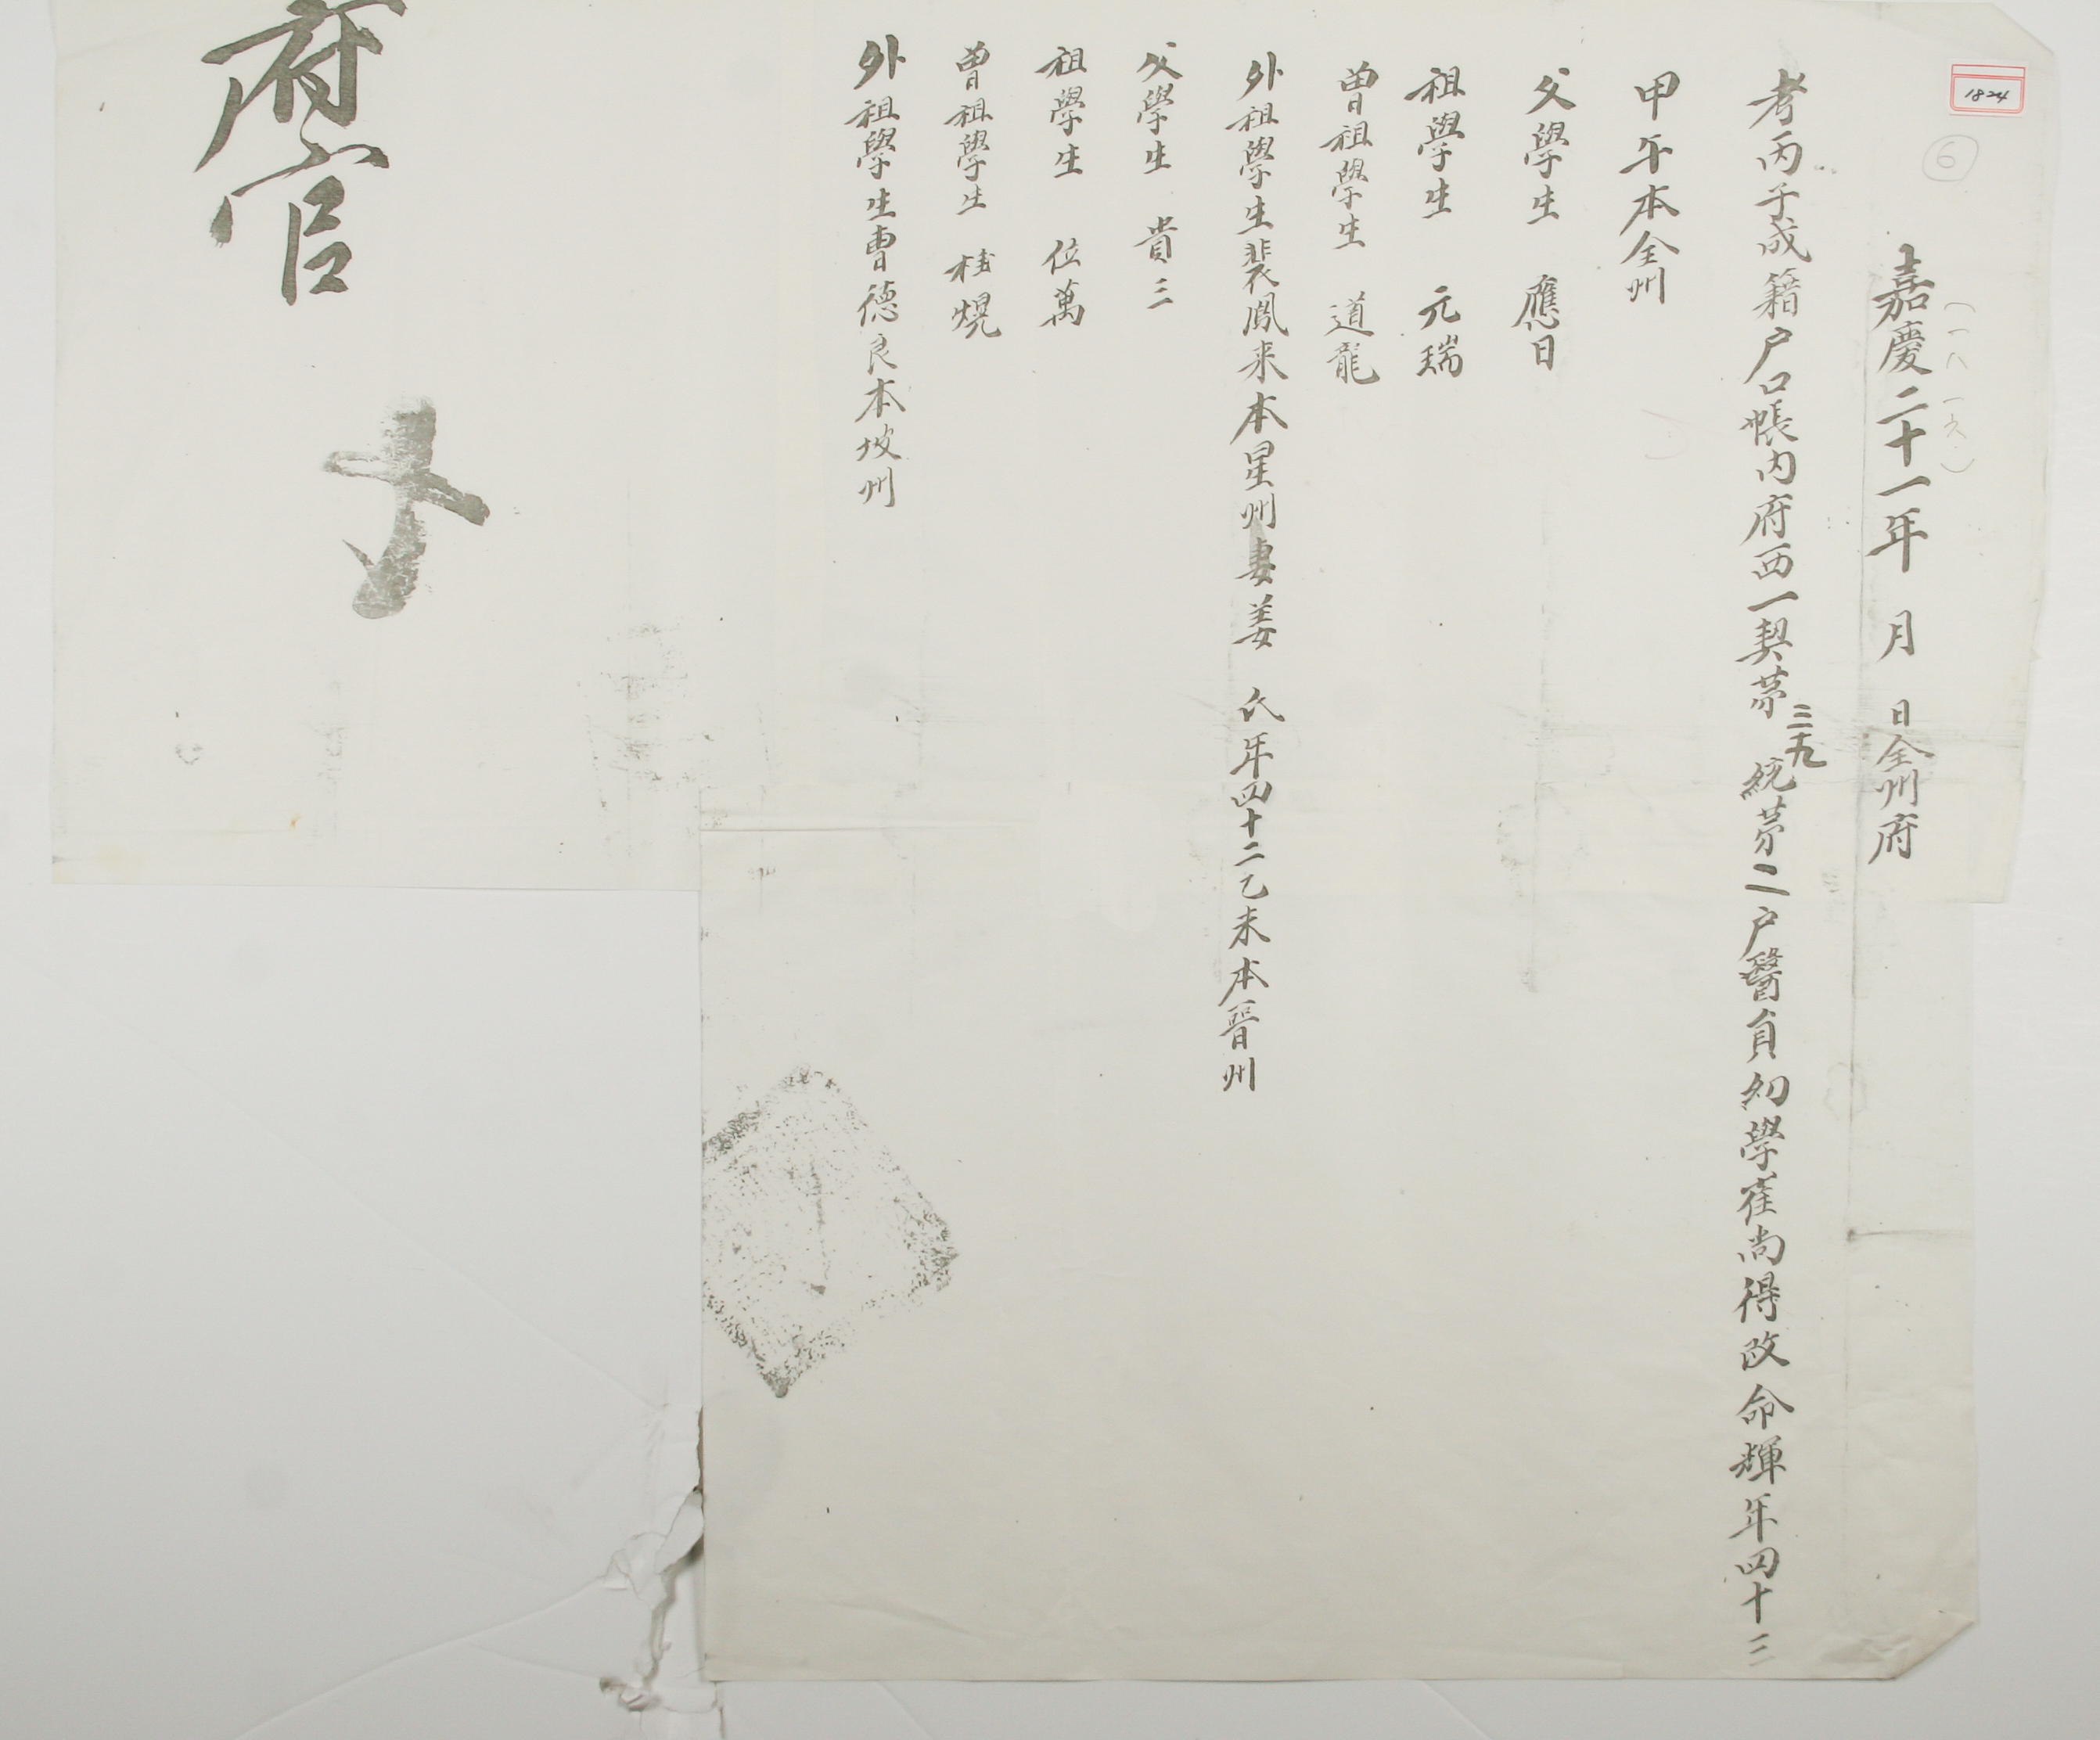 1824
6
(一八一六)
嘉慶二十一年 月 日全州府
考丙子成籍户口帳内府西一契苐三十九統苐二户醫負幼學崔尚得改命輝年四十三
甲午本全州
父學生 應日
祖學生 元瑞
曽祖學生 道龍
外祖學生裴鳳来本星州妻姜 氏年四十二乙未本晉州
父學生 貴三
祖學生 位萬
曽祖學生 桂熀
外祖學生曺德良本坡州
府官